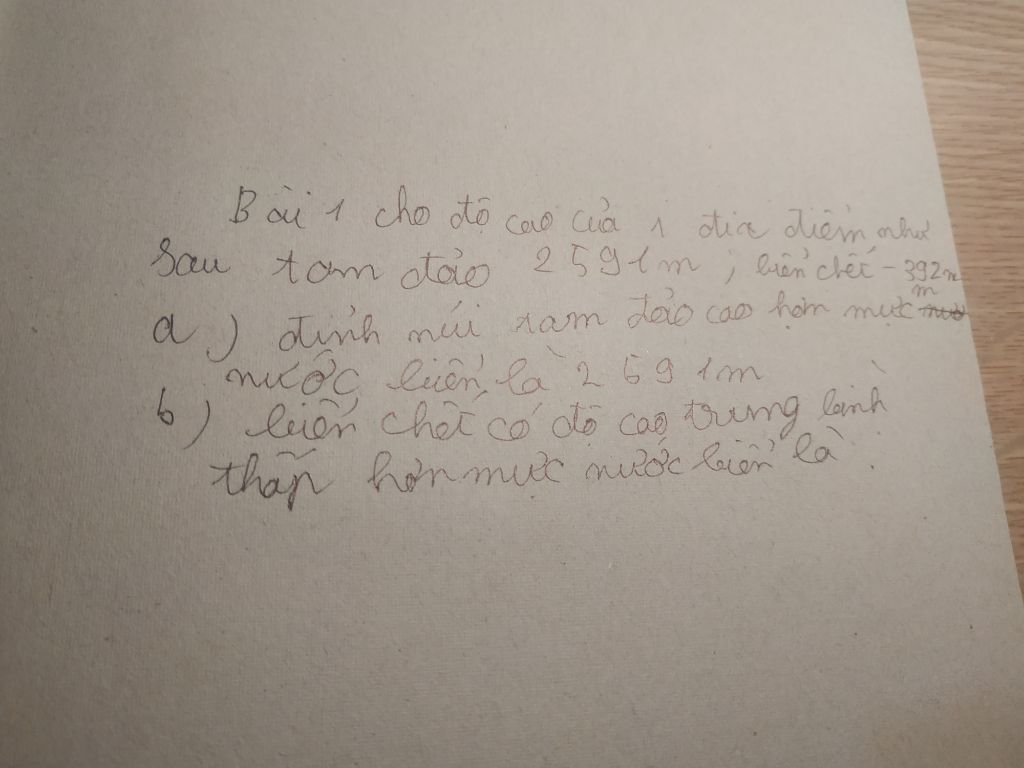 Bài 1 cho độ cao của 1 địa điểm như
Sau tam đảo 2591m, biển chết -392m
a) đỉnh núi tam đảo cao hơn mực
nước biển là 2591m
b) biển chết có độ cao trung bình
thấp hơn mực nước biển là.